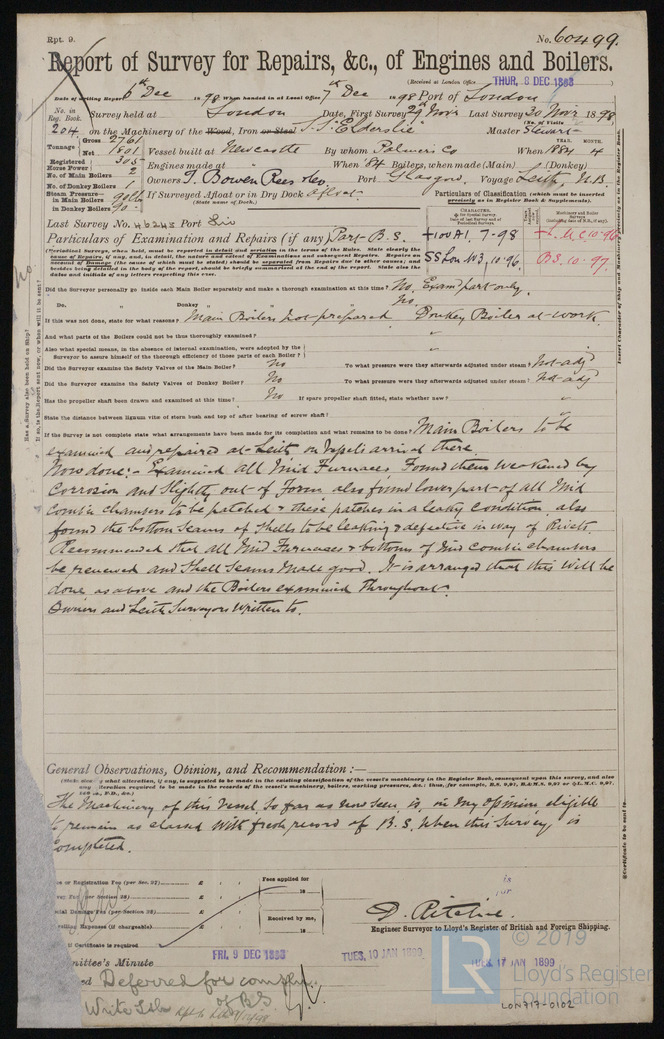 Rpt. 9.
No. 60499.
Report of Survey for Repairs, &c., of Engines and Boilers.
(Received at London Office THUR, 8 DEC 1898 )
Date of writing Report 6th Dec 1898 When handed in at Local Office 7th Dec 1898 Port of London
No. in Reg. Book. Survey held at London Date, First Survey 29th Novr Last Survey 30 Novr 1898
(No. of Visits )
204 on the Machinery of the Wood, Iron or Steel S.S. Elderslie Master Stewart
Tonnage Gross 2761 Net 1801 Vessel built at Newcastle By whom Palmers Co When 1884 4
YEAR. MONTH.
Registered Horse Power 305 Engines made at " When '84 Boilers, when made (Main) (Donkey)
No. of Main Boilers 2
No. of Donkey Boilers 1 Owners T. Bowen Rees & Co Port Glasgow Voyage Leith, N.B.
Steam Pressure in Main Boilers 90 lb in Donkey Boilers 90 If Surveyed Afloat or in Dry Dock afloat
(State name of Dock.)
Particulars of Classification (which must be inserted precisely as in Register Book & Supplements).
Last Survey No. 46243 Port
Particulars of Examination and Repairs (if any) Part B.S.
+100A1 7-98
SS Lon No3, 10-96
+L.M.C 10-96
B.S. 10-97
(Periodical Surveys, when held, must be reported in detail and seriatim in the terms of the Rules. State clearly the cause of Repairs, if any, and, in detail, the nature and extent of Examinations and subsequent Repairs. Repairs on account of Damage (the cause of which must be stated) should be separated from Repairs due to other causes; and besides being detailed in the body of the report, should be briefly summarised at the end of the report. State also the dates and initials of any letters respecting this case.
Did the Surveyor personally go inside each Main Boiler separately and make a thorough examination at this time? No, Exam'd part only.
Do. Donkey No,
If this was not done, state for what reasons? Main Boilers not prepared Donkey Boiler at work.
And what parts of the Boilers could not be thus thoroughly examined? "
Also what special means, in the absence of internal examination, were adopted by the Surveyor to assure himself of the thorough efficiency of those parts of each Boiler? "
Did the Surveyor examine the Safety Valves of the Main Boiler? No To what pressure were they afterwards adjusted under steam? Not adj
Did the Surveyor examine the Safety Valves of Donkey Boiler? No To what pressure were they afterwards adjusted under steam? Not adj
Has the propeller shaft been drawn and examined at this time? No If spare propeller shaft fitted, state whether new? "
State the distance between lignum vitæ of stern bush and top of after bearing of screw shaft? "
If the Survey is not complete state what arrangements have been made for its completion and what remains to be done? Main Boilers to be
examined and repaired at Leith on Vessels arrival there.
Now done:- Examined all Mid Furnaces Found them weakened by
Corrosion and Slightly out of Form, also found lower part of all Mid
Comb'n chambers to be patched & these patches in a leaky condition, also
found the bottom Seams of Shells to be leaking & defective in way of Rivets.
Recommended that all Mid Furnaces & bottoms of Mid comb'n chambers
be renewed and Shell Seams made good. It is arranged that this will be
done as above and the Boilers examined Throughout.
Owners and Leith Surveyors Written to.
General Observations, Opinion, and Recommendation:—
The Machinery of this Vessel So far as now seen, is, in my opinion eligible
to remain as classed With fresh record of B.S. When this Survey is
Completed.
Fees applied for
Received by me,
D. Ritchie.
Engineer Surveyor to Lloyd's Register of British and Foreign Shipping.
FRI, 9 DEC 1898
TUES, 10 JAN 1899
TUES, 17 JAN 1899
Committee's Minute
Deferred for compln
of BS
Write
© 2019
LR
Lloyd's Register
Foundation
LON717-0102